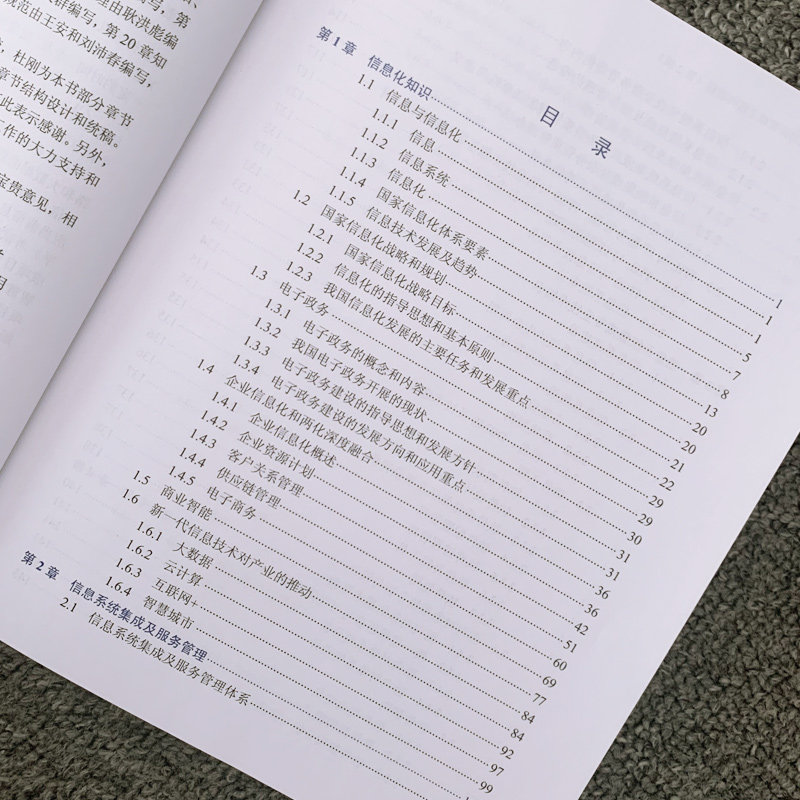 编写,第
理由耿洪彪编
规范由王安和刘沛春编写,
群编写,第20章知
杜刚为本书部分章节
章节结构设计和统稿。
此表示感谢。另外,
工作的大力支持和
宝贵意见,相
月
目 录
第1章 信息化知识 1
1.1 信息与信息化 1
1.1.1 信息 1
1.1.2 信息系统 5
1.1.3 信息化 7
1.1.4 国家信息化体系要素 8
1.1.5 信息技术发展及趋势 13
1.2 国家信息化战略和规划 20
1.2.1 国家信息化战略目标 20
1.2.2 信息化的指导思想和基本原则 21
1.2.3 我国信息化发展的主要任务和发展重点 22
1.3 电子政务 29
1.3.1 电子政务的概念和内容 29
1.3.2 我国电子政务开展的现状 30
1.3.3 电子政务建设的指导思想和发展方针 31
1.3.4 电子政务建设的发展方向和应用重点 31
1.4 企业信息化和两化深度融合 36
1.4.1 企业信息化概述 36
1.4.2 企业资源计划 42
1.4.3 客户关系管理 51
1.4.4 供应链管理 60
1.4.5 电子商务 69
1.5 商业智能 77
1.6 新一代信息技术对产业的推动 84
1.6.1 大数据 84
1.6.2 云计算 92
1.6.3 互联网+ 97
1.6.4 智慧城市 99
第2章 信息系统集成及服务管理
2.1 信息系统集成及服务管理体系